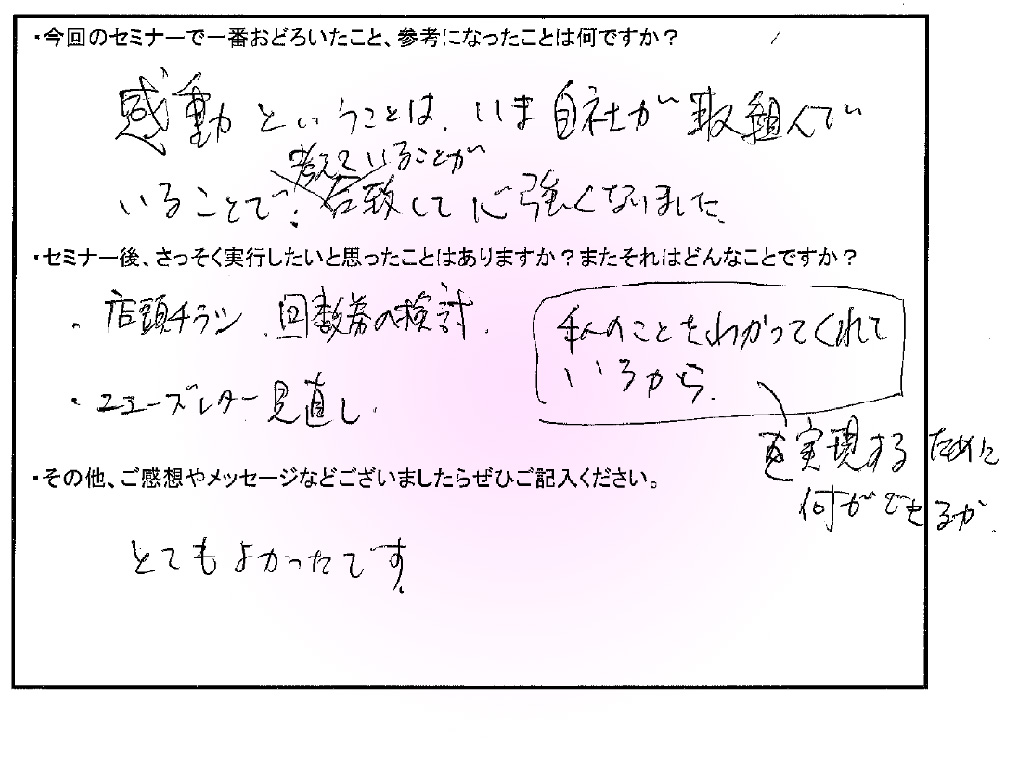 ・今回のセミナーで一番おどろいたこと、参考になったことは何ですか？
感動ということは、いま自社が取組んで
考えていることが
いることで、合致して心強くなりました。
・セミナー後、さっそく実行したいと思ったことはありますか？またそれはどんなことですか？
・店頭チラシ、回数券の検討.
私のことをわかってくれて
いるから.
・ニューズレター見直し.
を実現するために
何ができるか.
・その他、ご感想やメッセージなどございましたらぜひご記入ください。
とてもよかったです。